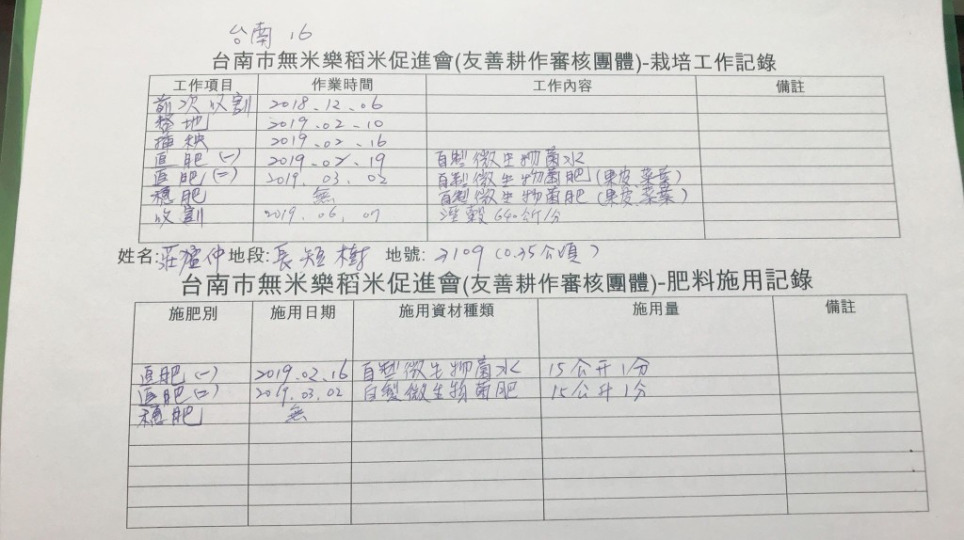 台南 16
台南市無米樂稻米促進會(友善耕作審核團體)-栽培工作記錄
工作項目 作業時間 工作內容 備註
前次收割 2018.12.06
整地 2019.02.10
插秧 2019.02.16
追肥(一) 2019.02.19 自製微生物菌水
追肥(二) 2019.03.02 自製微生物菌肥(果皮.菜葉)
穗肥 無 自製微生物菌肥(果皮.菜葉)
收割 2019.06.07 溼穀640斤/分
姓名:莊 仲 地段:長短樹 地號: 3109 (0.35公頃)
台南市無米樂稻米促進會(友善耕作審核團體)-肥料施用記錄
施肥別 施用日期 施用資材種類 施用量 備註
追肥(一) 2019.02.16 自製微生物菌水 15公升1分
追肥(二) 2019.03.02 自製微生物菌肥 15公升1分
穗肥 無